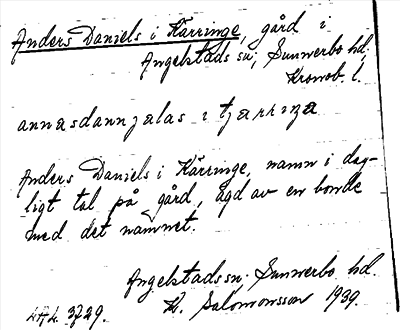 Anders Daniels i Kärringe, gård i
Angelstads sn; Sunnerbo hd;
Kronob. l.
annasdannjalas i tjarriga
Anders Daniels i Kärringe, namn i dag-
ligt tal på gård, ägd av en bonde
med det namnet.
Angelstads sn. Sunnerbo hd.
K. Salomonsson 1939.
3729.